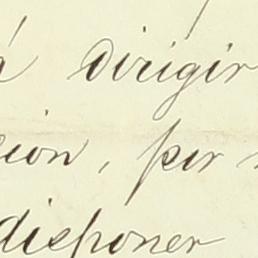 á dirigir
cion, por
disponer